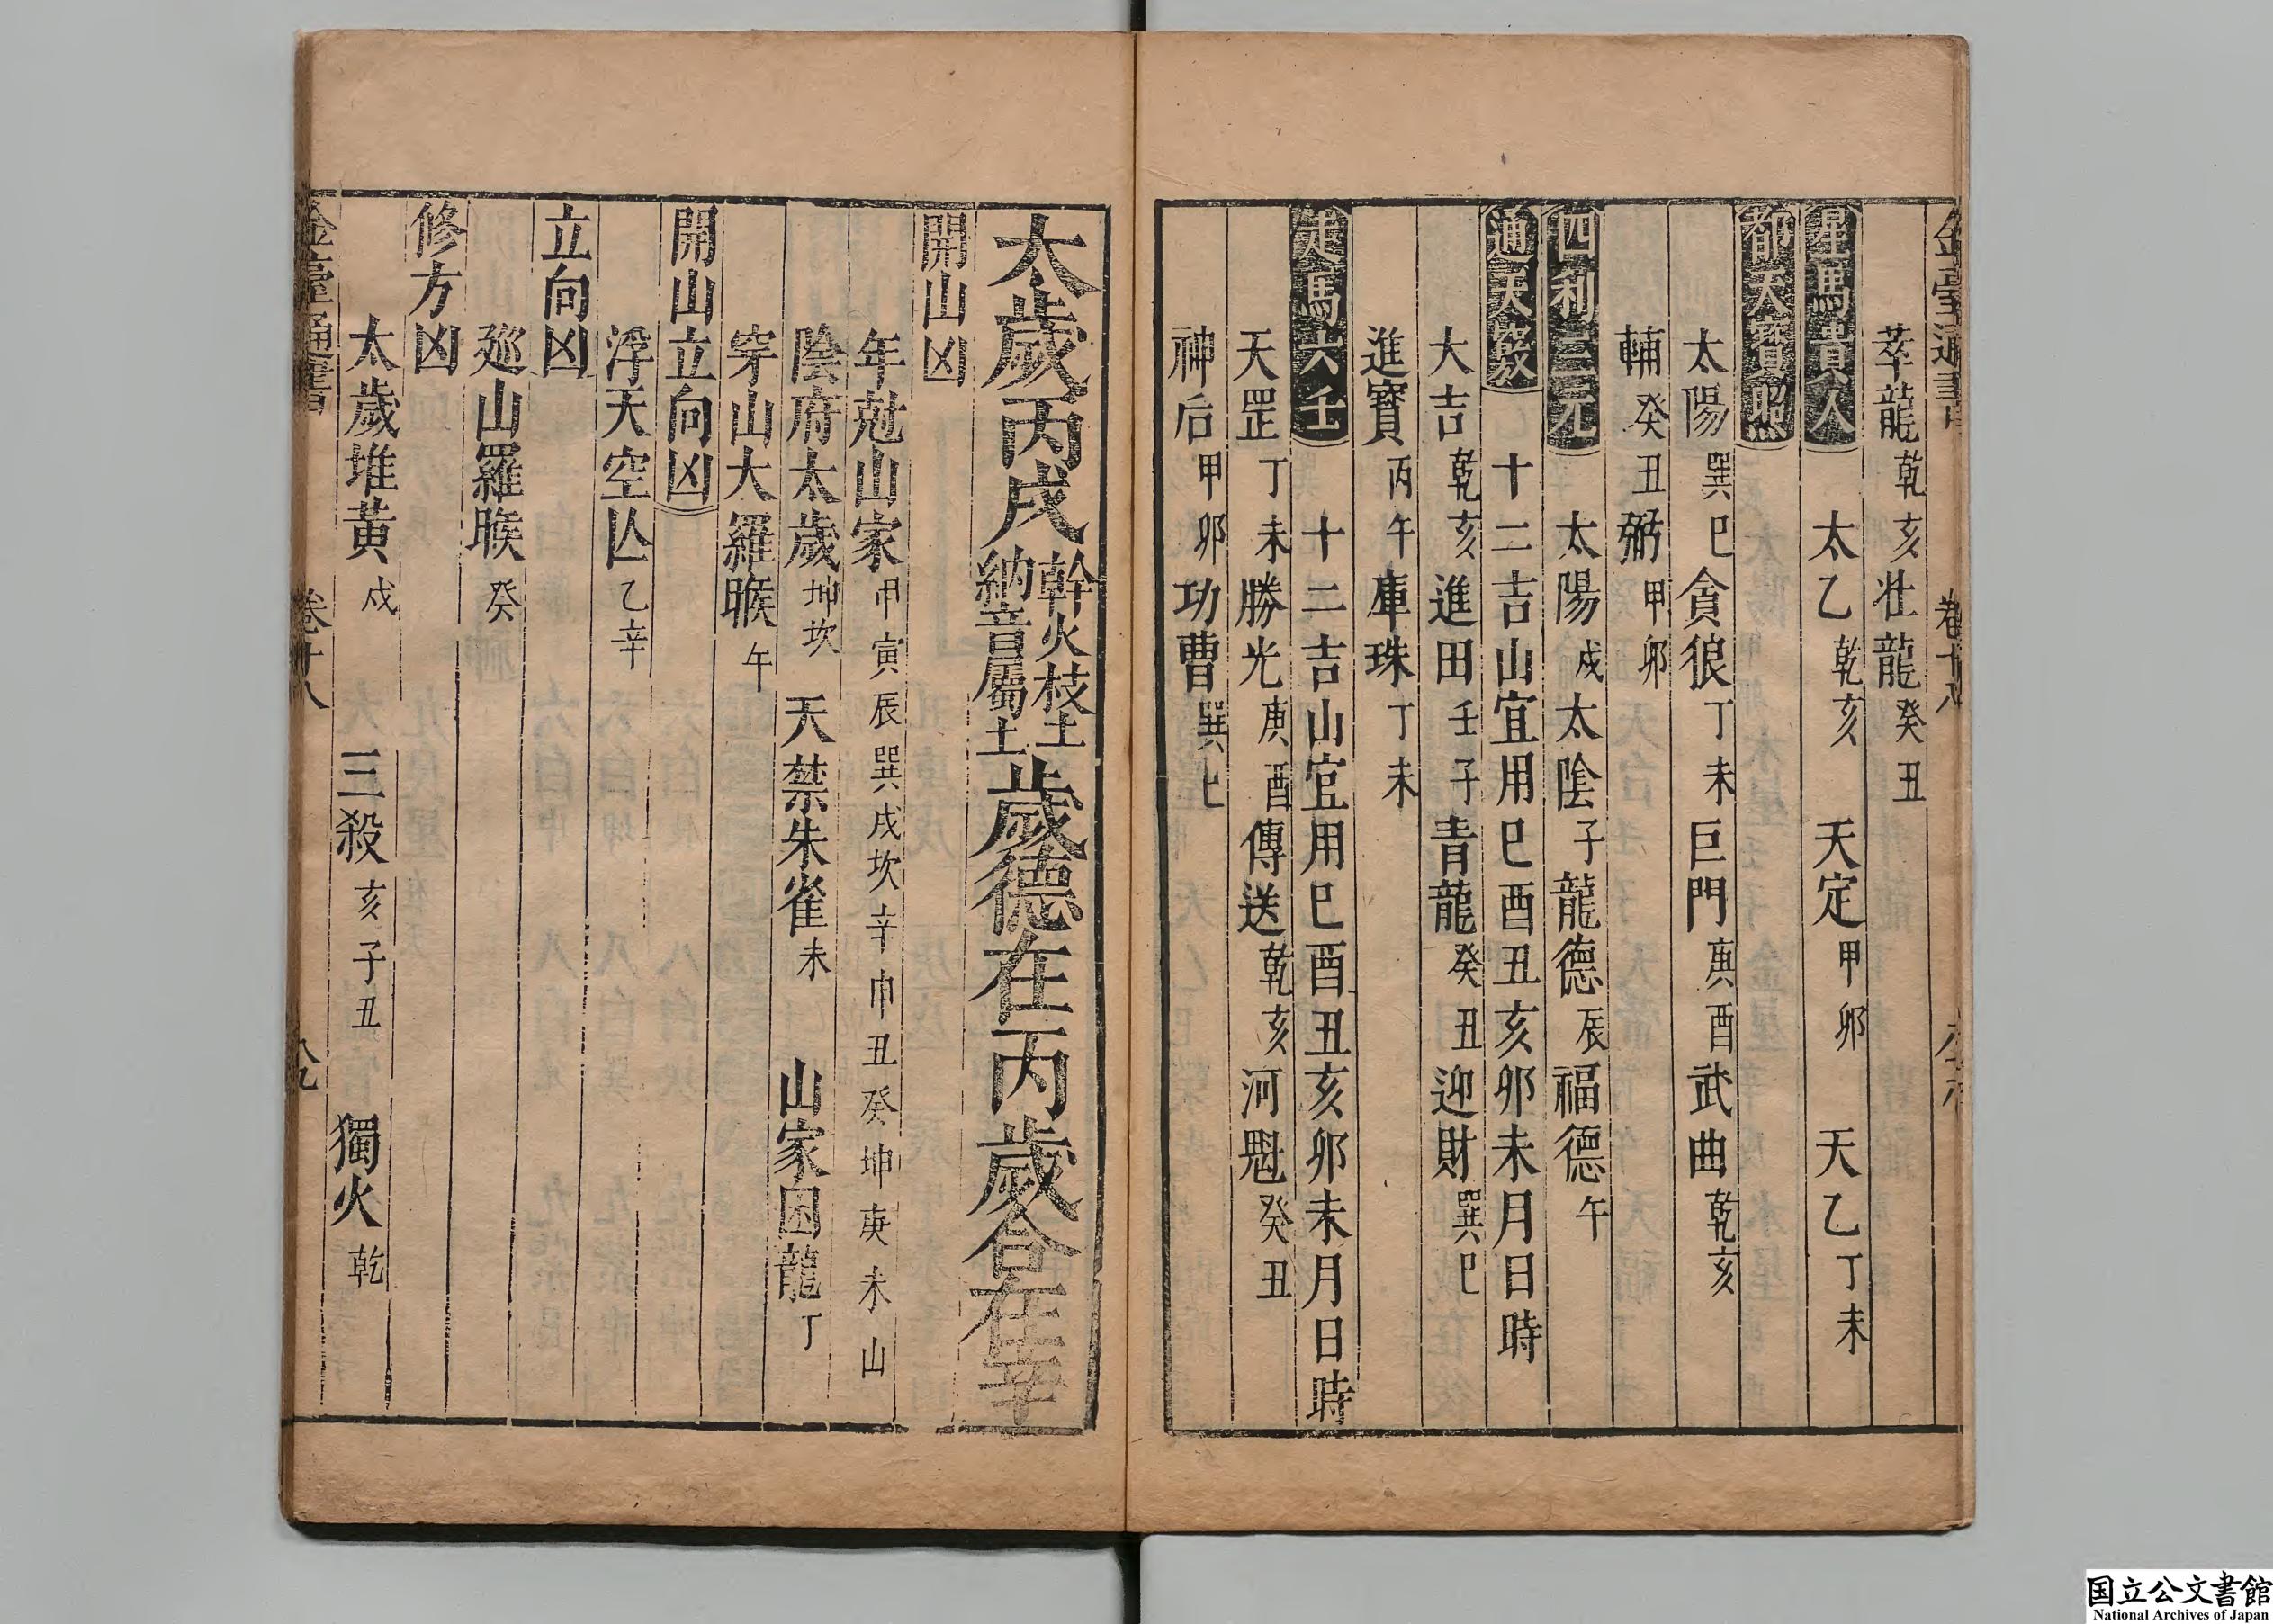 金臺通書 卷十八
萃龍乾亥壯龍癸丑
星馬貴人 太乙乾亥 天定甲卯 天乙丁未
都天寶照
太陽巽巳貪狼丁未巨門庚酉武曲乾亥
輔癸丑弼甲卯
四利三元 太陽戍太陰子龍德辰福德午
通天竅 十二吉山宜用巳酉丑亥卯未月日時
大吉乾亥進田壬子青龍癸丑迎財巽巳
進寶丙午庫珠丁未
走馬六壬 十二吉山宜用巳酉丑亥卯未月日時
天罡丁未勝光庚酉傳送乾亥河魁癸丑
神后甲卯功曹巽巳
太歲丙戌幹火枝土納音屬土歲德在丙歲合在辛
開山凶
年尅山家甲寅辰巽戌坎辛申丑癸坤庚未山
陰府太歲坤坎 天禁朱雀未 山家困龍丁
穿山大羅睺午
開山立向凶
浮天空亾乙辛
立向凶
廵山羅睺癸
修方凶
太歲堆黃戍 三殺亥子丑 獨火乾
金臺通書 卷十八 八九
国立公文書館
National Archives of Japan